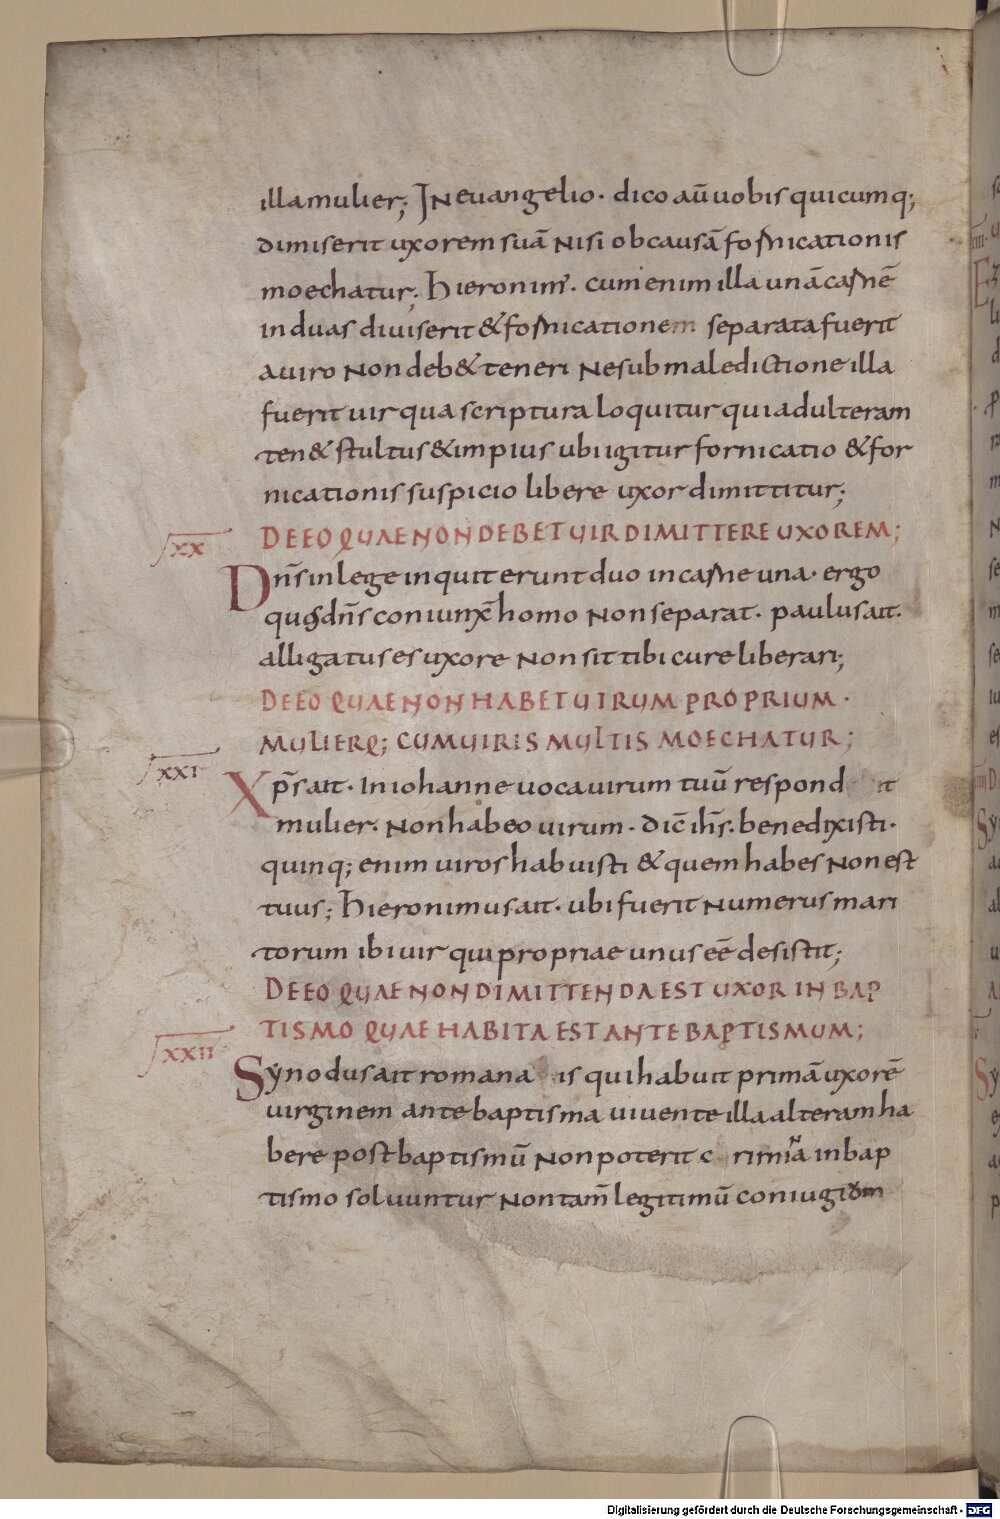 illa mulier; IN euangelio· dico aū uobis quicumq;
dimiserit uxorem suā Nisi ob causā fornicationis
moechatur; hieronim'. cum enim illa unā carnē
in duas diuiserit & fornicationem separata fuerit
a uiro Non deb& teneri Ne sub maledictione illa
fuerit uir qua scriptura loquitur qui adulteram
ten& stultus & impius ubi igitur fornicatio & for
nicationis suspicio libere uxor dimittitur;
XX DE EO QUAE NON DEBET UIR DIMITTERE UXOREM;
Dn̄s in lege inquit erunt duo in carne una· ergo
quod dn̄s coniunx̄ homo Non separat· paulus ait·
alligatus es uxore Non sit tibi cure liberari;
DE EO QUAE NON HABET UIRUM PROPRIUM·
MULIERQ; CUM UIRIS MULTIS MOECHATUR;
XXI Xp̄s ait· In iohanne uoca uirum tuū respond it
mulier· Non habeo uirum· dic̄ ih̄s· benedixisti·
quinq; enim uiros habuisti & quem habes Non est
tuus; hieronimus ait· ubi fuerit Numerus mari
torum ibi uir qui propriae unus eē desistit;
DE EO QUAE NON DIMITTENDA EST UXOR IN BAP
TISMO QUAE HABITA EST ANTE BAPTISMUM;
XXII Synodus ait romana is qui habuit primā uxorē
uirginem ante baptisma uiuente illa alteram ha
bere post baptismū Non poterit c rimīa in bap
tismo soluuntur Non tam̄ legitimū coniugium
Digitalisierung gefördert durch die Deutsche Forschungsgemeinschaft - DFG